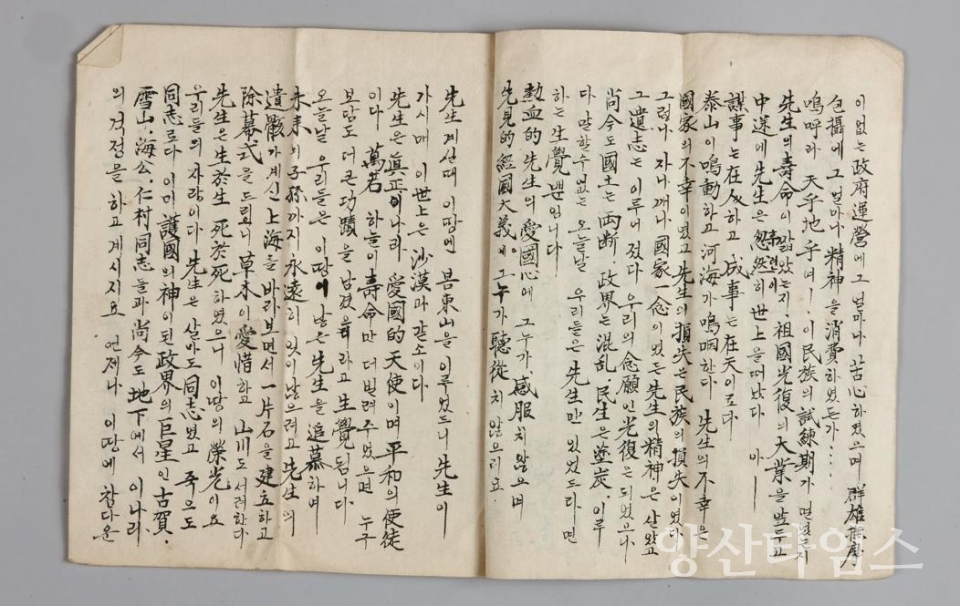 이없는 政府運營에 그 얼마나 苦心하였으며 群雄
包攝에 그얼마나 精神을 消費하였든가....
嗚呼라 天乎地乎여! 이民族의 試鍊期가 면였든지
先生의 壽命이 짧았는지 祖國光復의 大業을 앞두고
中途에 先生은 忽然히 世上을 떠났다 아—
謀事는 在人하고 成事는 在天이로다
泰山이 鳴動하고 河海가 嗚咽한다 先生의 不幸은
國家의 不幸이였고 先生의 損失은 民族의 損失이였다
그러나 자나깨나 國家一念이였든 先生의 精神은 살았고
그 遺志는 이루어졌다 우리의 念願인 光復은 되었으나
尚今도 國土는 両断 政界는 混乱 民生은 塗炭 이루
다 말할수없는 오늘날 우리들은 先生만 있었드라면
하는 生覺뿐입니다
熱血的 先生의 愛國心에 그누가 感服치 않으며
先見的 經圇大義에 그누가 聽從치 않으리요
先生계산때 이땅엔 봄東山을 이루었드니 先生이
가시매 이世上은 沙漠과 같소이다
先生은 眞正이나라 愛國的 天使이며 平和의 使徒
이다 萬若 하늘이 壽命만 더 빌려주었으면 누구
보담도 더 큰 功蹟을 남겼을리라고 生覺됩니다
오늘날 우리들은 이땅이 낳은 先生을 追慕하며
未来의 子孫까지 永遠히 잊이않으려고 先生의
遺骸가 계신 上海을 바라보면서 一片石을 建立하고
除幕式을 드리오니 草木이 愛惜하고 山川도 서러한다
先生은 生於生 死於死 하였으니 이땅의 榮光이요
우리들의 자랑이다 先生은 살아도 同志였고 죽으도
同志로다 이미 護國의 神이된 政界의 巨星인 古賀
雪山, 海公, 仁村 同志들과 尚今도 地下에서 이나라
의 걱정을 하고계시지요 언제나 이땅에 참다운
양산타임스